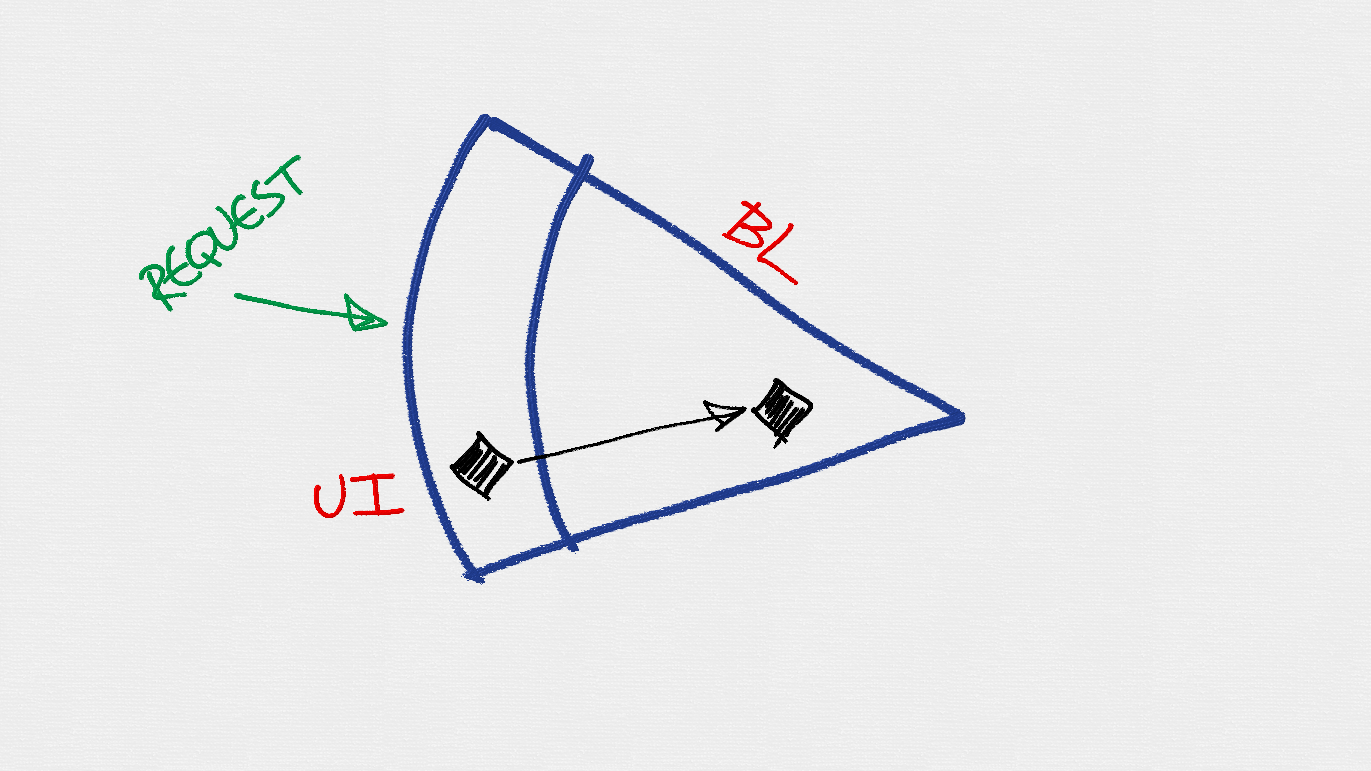 REQUEST
BL
UI